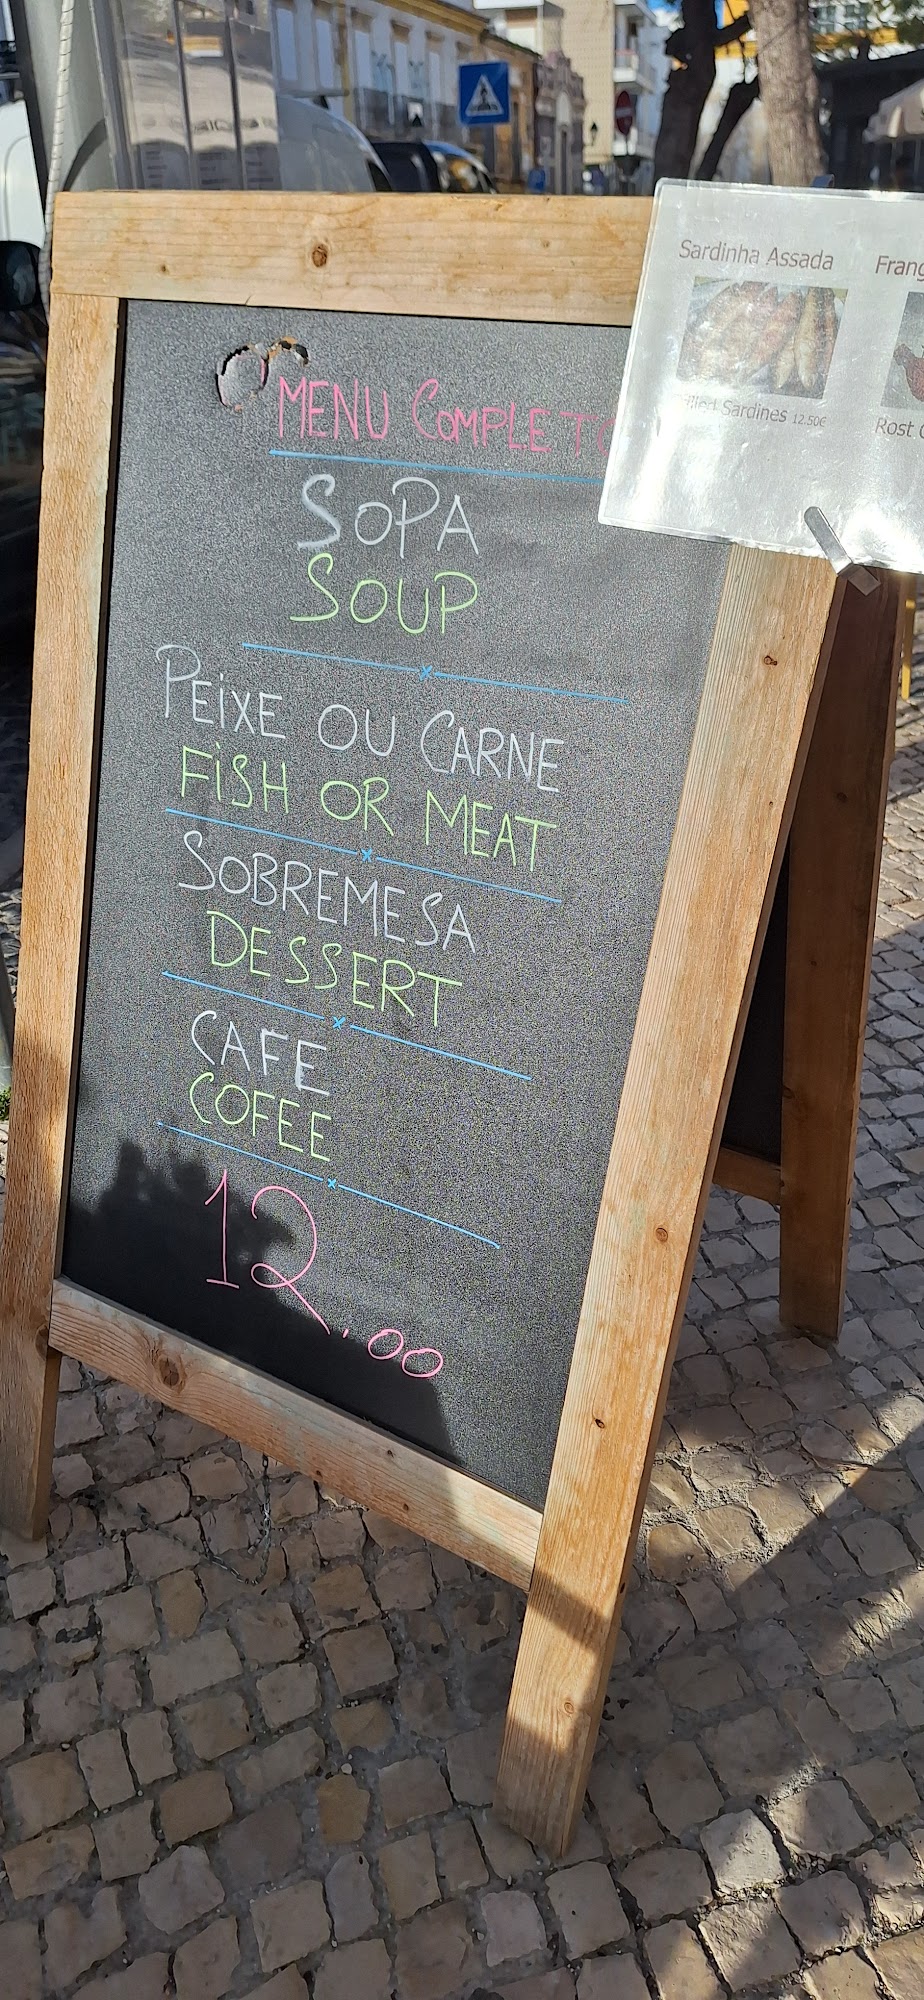 MENU COMPLETO
SOPA
SOUP
PEIXE OU CARNE
FISH OR MEAT
SOBREMESA
DESSERT
CAFE
COFEE
12.00
Sardinha Assada
Sardines 12.50€
Rost